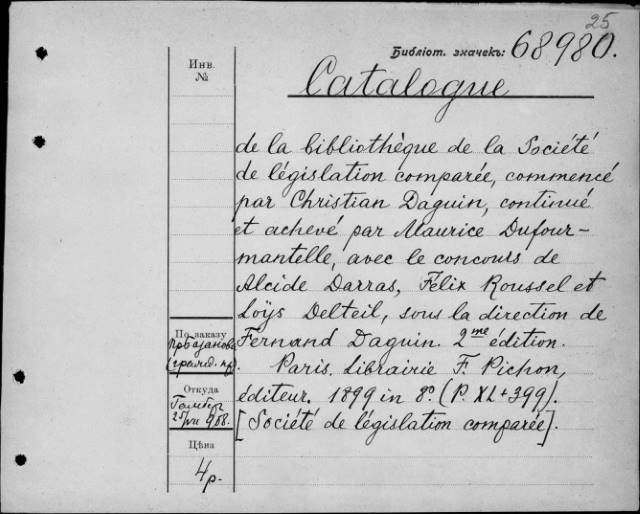 25
Библіот. значекъ: 68980.
Инв.
№
Catalogue
de la bibliothèque de la Société
de législation comparée, commencé
par Christian Daguin, continué
et achevé par Maurice Dufour-
mantelle, avec le concours de
Alcide Darras, Félix Roussel et
Loÿs Delteil, sous la direction de
Fernand Daguin. 2me édition.
Paris. Librairie F. Pichon,
éditeur. 1899 in 8º. (P. XL+399).
[Société de législation comparée].
По заказу
Откуда
25/VII 908.
Цѣна
4 р.